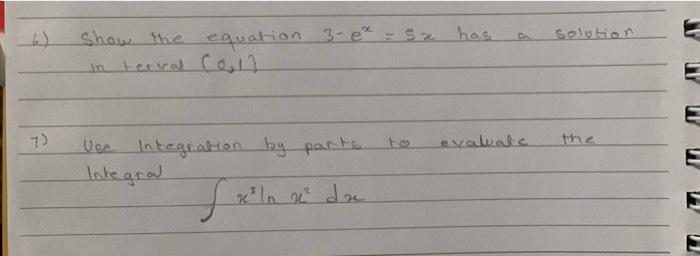 6) Show the equation 3-eˣ = 5x has a solution
in terval (0,1)
7) Use Integration by parts to evaluate the
Integral
∫ x³ ln x² dx